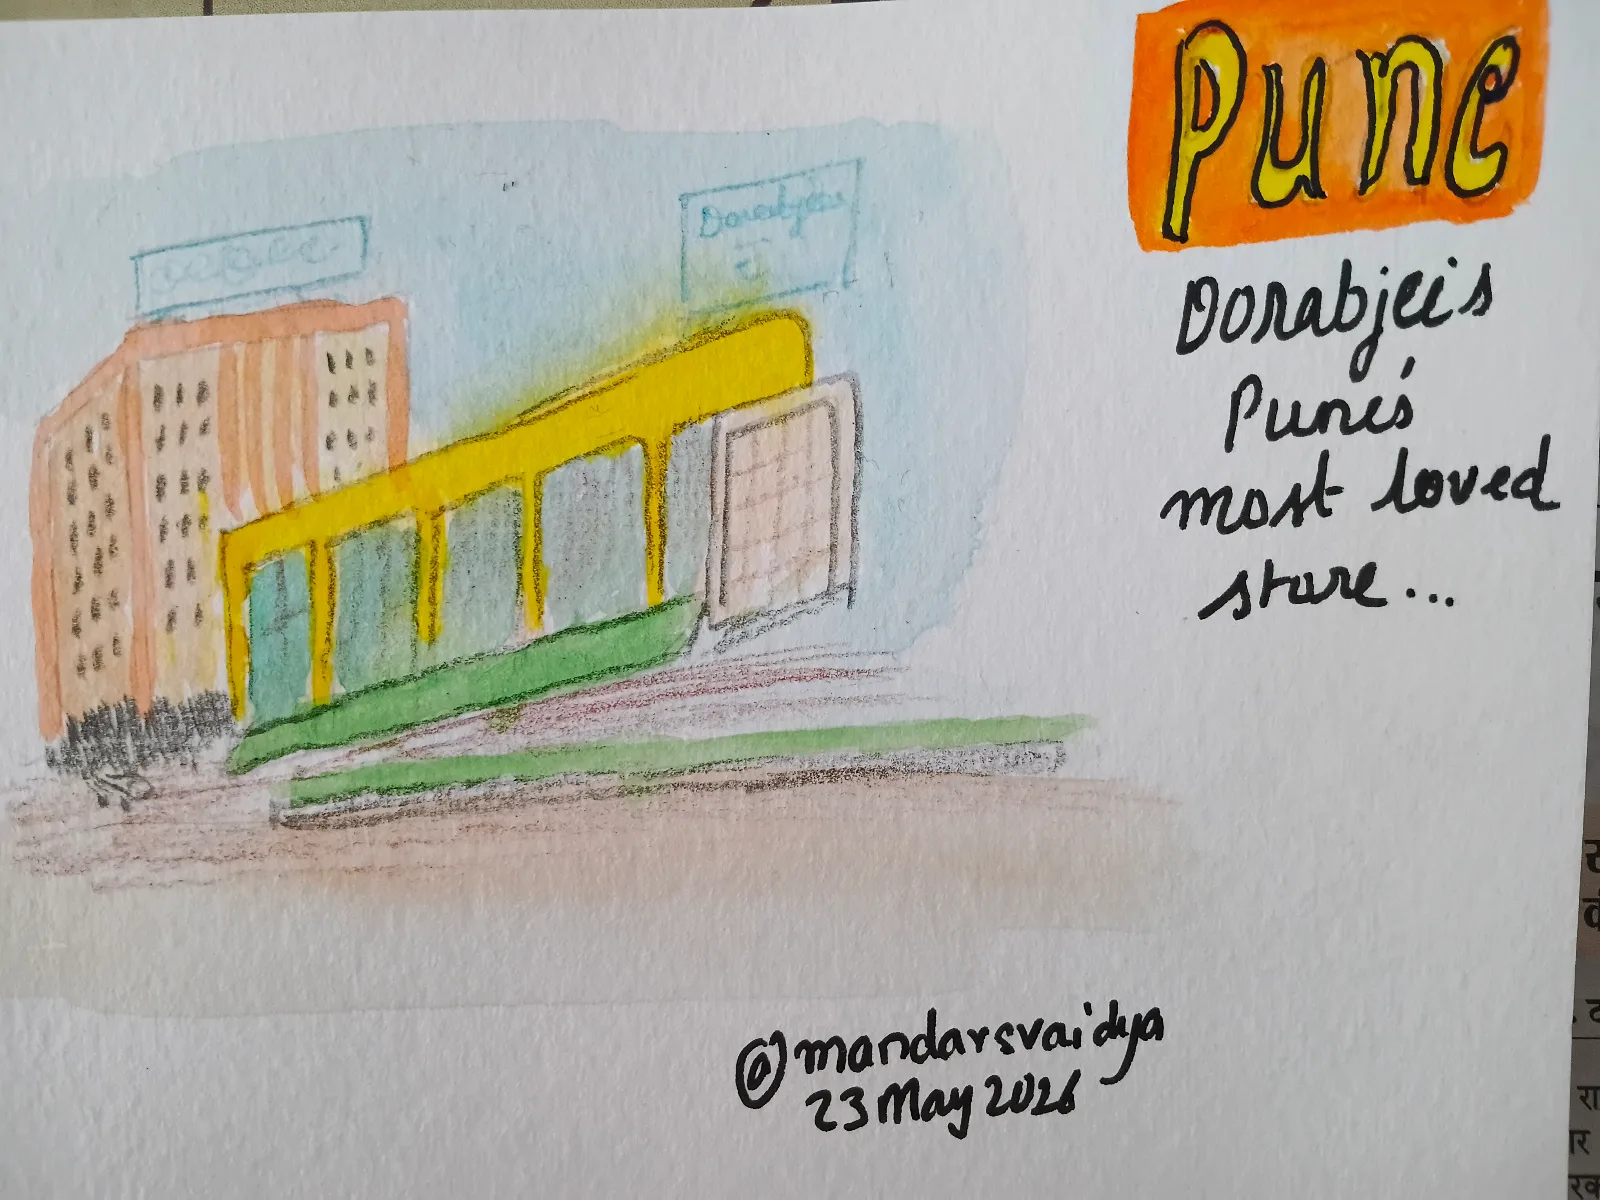 Pune
Dorabjeis
Dorabjeis
Pune's
most loved
store...
@mandarsvaidya
23 May 2026